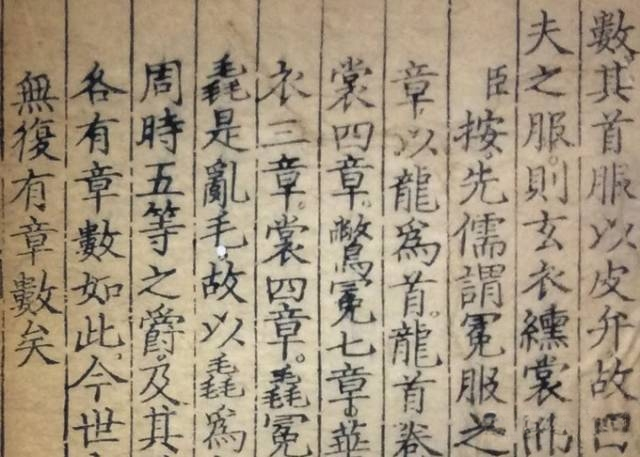 數其首服以皮弁故曰
夫之服則玄衣纁裳
臣按先儒謂冕服之
章以龍為首龍首卷
裳四章鷩冕七章華
衣三章裳四章毳冕
毳是亂毛故以毳為
周時五等之爵及其
各有章數如此今世
無復有章數矣